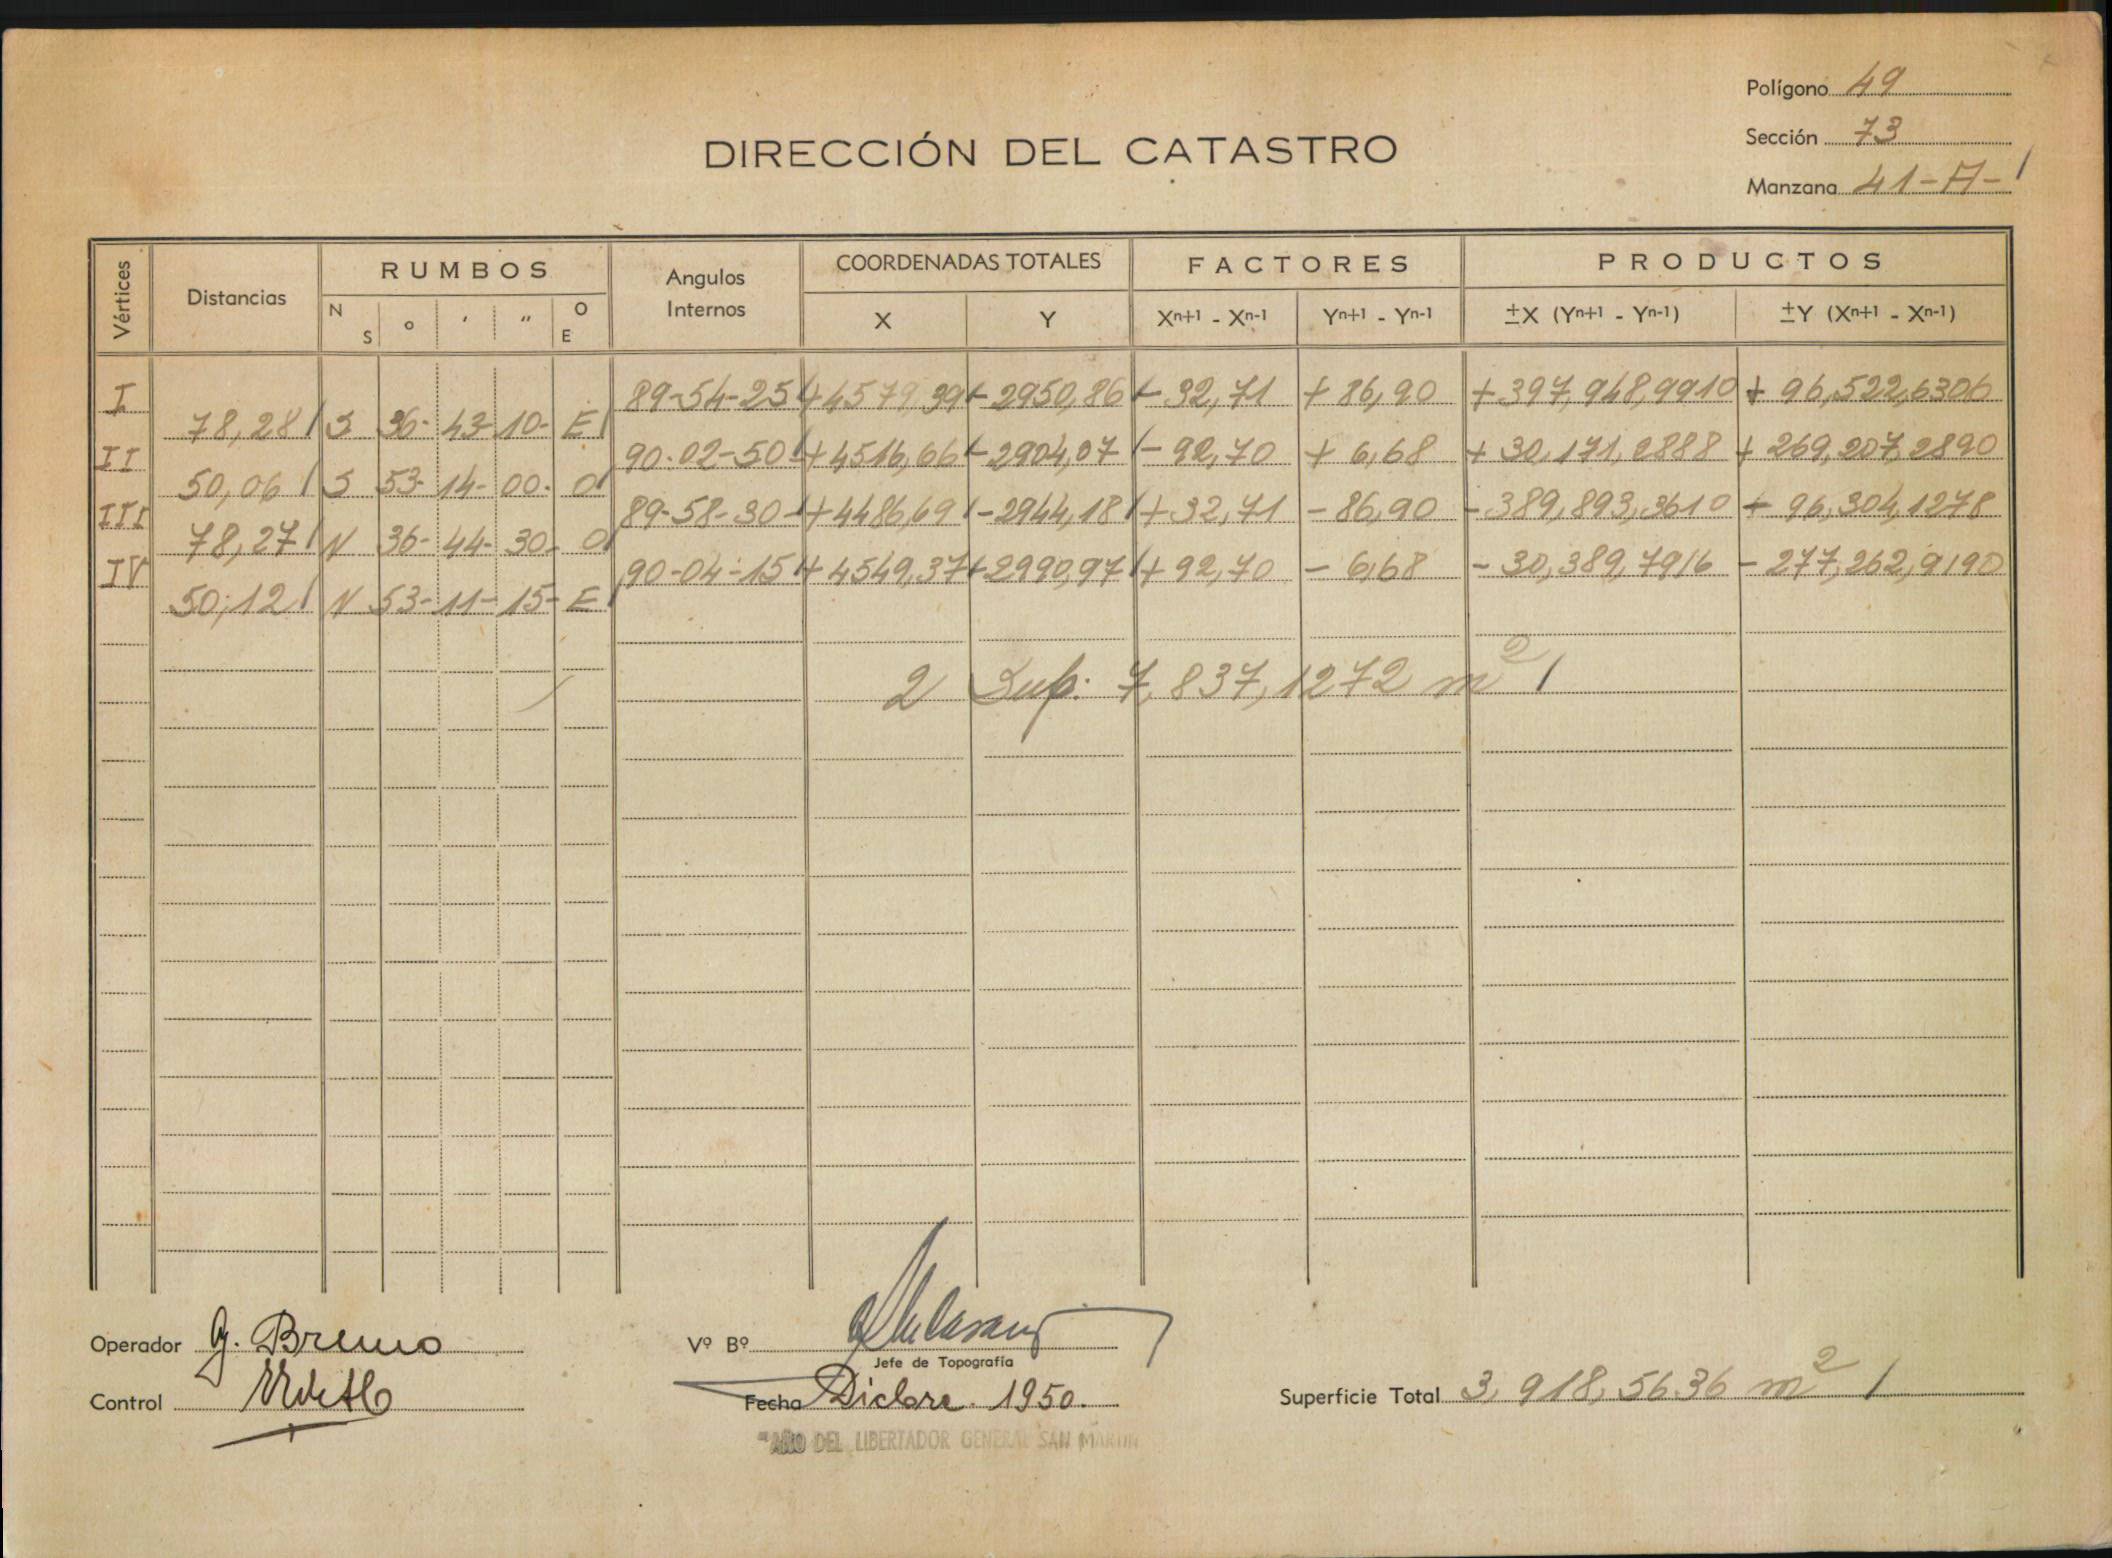 Polígono 49
Sección 73
Manzana 41-A-
DIRECCIÓN DEL CATASTRO
Vértices Distancias RUMBOS Angulos Internos COORDENADAS TOTALES FACTORES PRODUCTOS
N S ° ' " O E X Y Xn+1 - Xn-1 Yn+1 - Yn-1 ±X (Yn+1 - Yn-1) ±Y (Xn+1 - Xn-1)
I 89-54-25 +4579,39 -2950,86 -32,71 +86,90 +397,948,9910 +96,522,6306
78,28 S 36-43-10- E
II 90-02-50 +4516,66 -2904,07 -92,70 +6,68 +30,171,2888 +269,207,2890
50,06 S 53-14-00- O
III 89-58-30 +4486,69 -2944,18 +32,71 -86,90 -389,893,3610 -96,304,1278
78,27 N 36-44-30- O
IV 90-04-15 +4549,37 -2990,97 +92,70 -6,68 -30,389,7916 -277,262,9190
50,12 N 53-11-15- E
2 Sup. 7,837,1272 m2
Operador G. Bruno
Vº Bº
Jefe de Topografía
Control
Fecha Dicbre. 1950.
Superficie Total 3,918,5636 m2
"AÑO DEL LIBERTADOR GENERAL SAN MARTIN